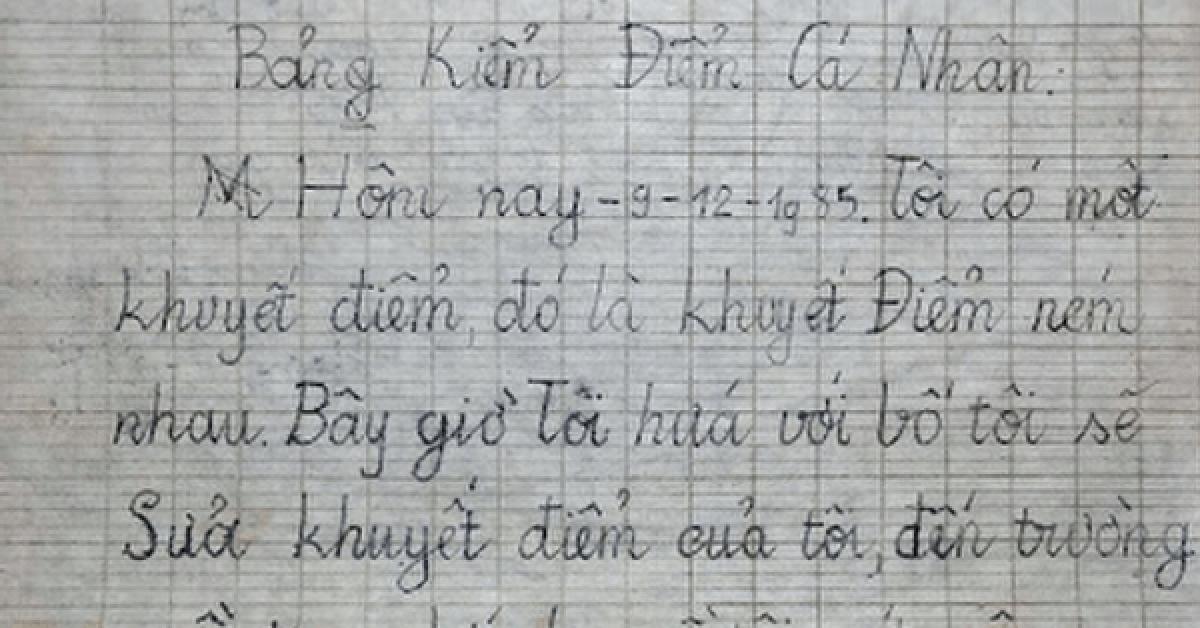 Bảng Kiểm Điểm Cá Nhân:
Hôm nay -9-12-1985. Tôi có một
khuyết điểm, đó là khuyết Điểm ném
nhau. Bây giờ Tôi hứa với bố tôi sẽ
Sửa khuyết điểm của tôi, đến trường